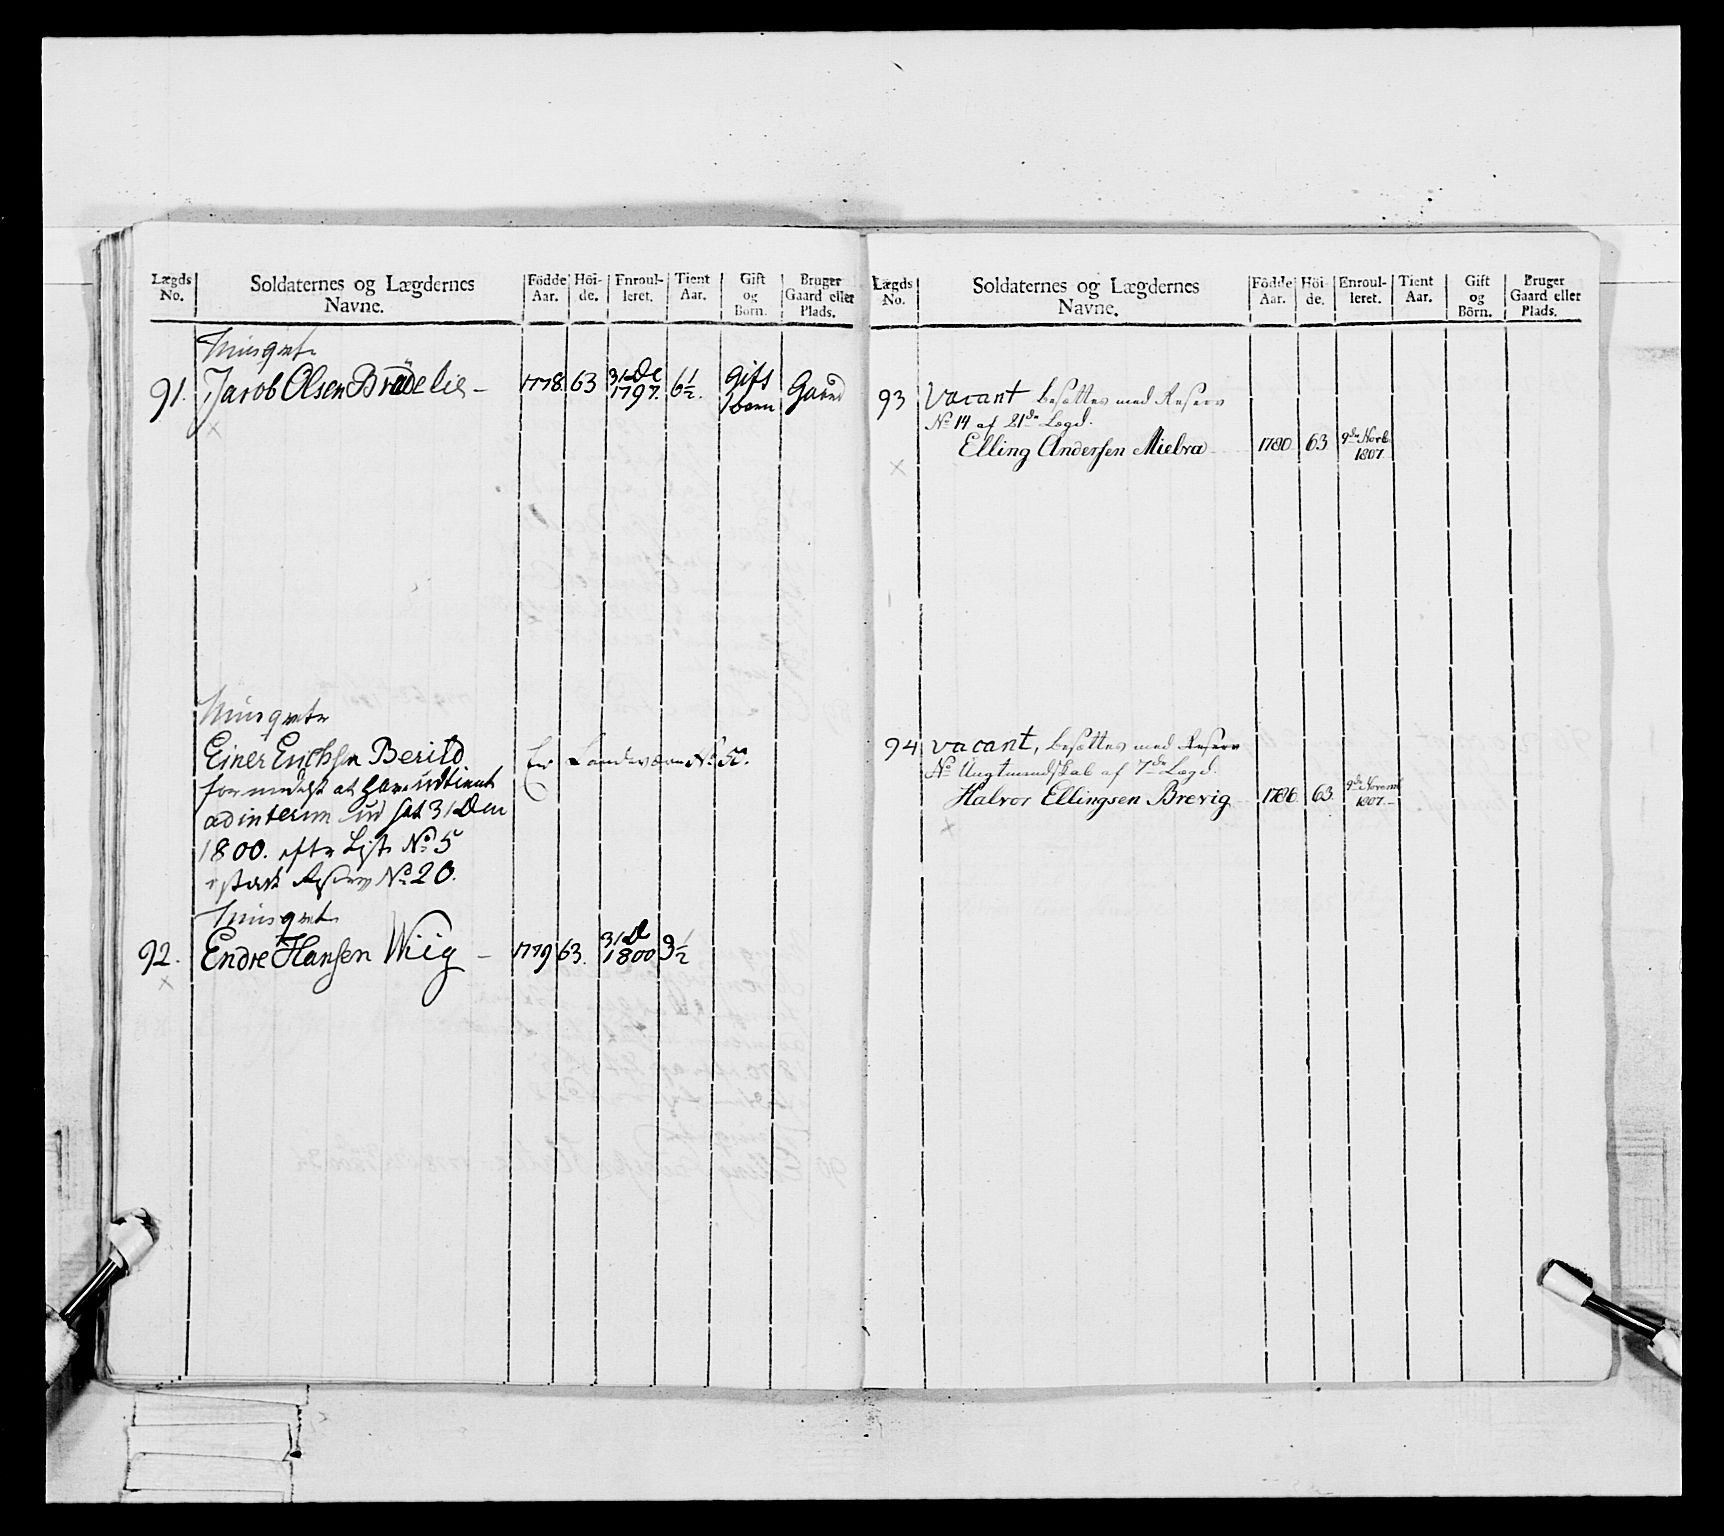 Lægds No. Soldaternes og Lægdernes Navne. Födde Aar. Höi-de. Enroul-leret. Tient Aar. Gift og Börn. Bruger Gaard eller Plads.
Musqvet:
91. Jacob Olsen Brüdelie - 1778. 63 31 De 1797. 6½. Gift 1 barn Gaard
Musqvetr
Einer Erichsen Berild Er Landeværn No 50.
formedelst at have udtient
ad interim ud sat 31 Dem
1800. efter List No 5
No 20.
Musqvet:
92. Endre Hansen Wiig - 1779 63. 31 D 1800 3½
Lægds No. Soldaternes og Lægdernes Navne. Födde Aar. Höi-de. Enroul-leret. Tient Aar. Gift og Börn. Bruger Gaard eller Plads.
93 Vacant besættes med Reserv
No 14 af 21de Lægd.
Elling Andersen Mielva 1780 63 9de Novb. 1807.
94 vacant, besættes med Reserv
No Ungtmandskab af 7de Lægd.
Halvor Ellingsen Brevig 1786 63. 9de Novemb 1807.